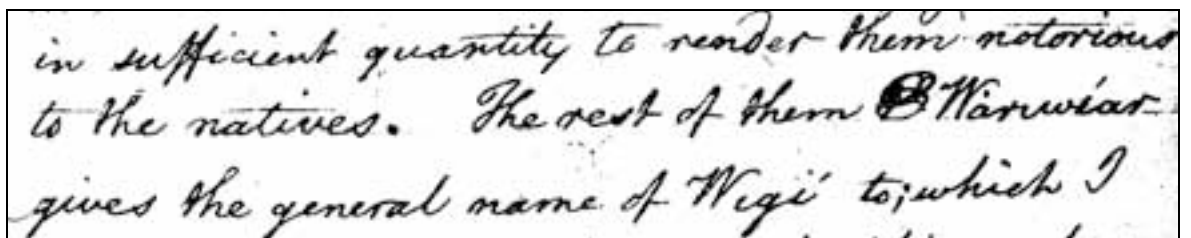 in sufficient quantity to render them notorious
to the natives. The rest of them Wáruwíar-
gives the general name of Wigí to; which I